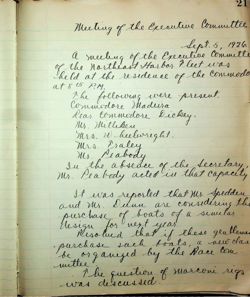 21
Meeting of the Executive Committee
Sept. 5, 1926.
A meeting of the Executive Committee
of the Northeast Harbor Fleet was
held at the residence of the Commodore
at 5 P.M.
The following were present.
Commodore Madeira
Rear Commodore Dickey.
Mr. Milliken
Mrs. Wheelwright.
Mrs. Fraley
Mr. Peabody
In the absence of the Secretary,
Mr. Peabody acted in that capacity
It was reported that Mr. Spedden
and Mr. Dunn are considering the
purchase of boats of a similar
design for next year.
Resolved that if these gentlemen
purchase such boats, a new class
be organized by the Race Com-
mittee.
The question of marconi rigs
was discussed